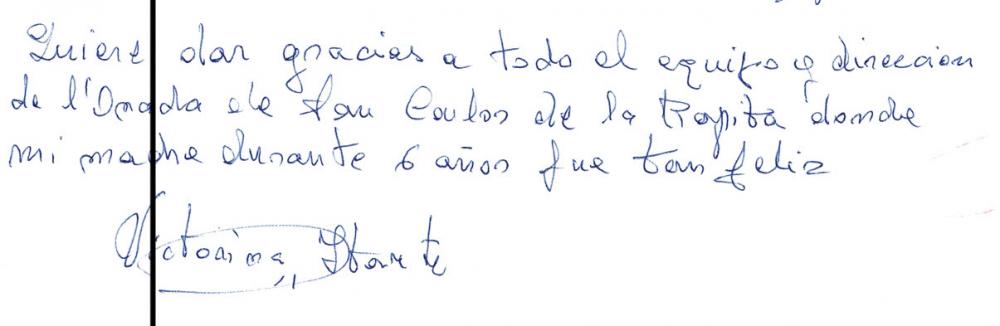 Quiere dar gracias a todo el equipo y direccion
de l'Onada de San Carlos de la Rapita donde
mi madre durante 6 años fue tan feliz
Victorina